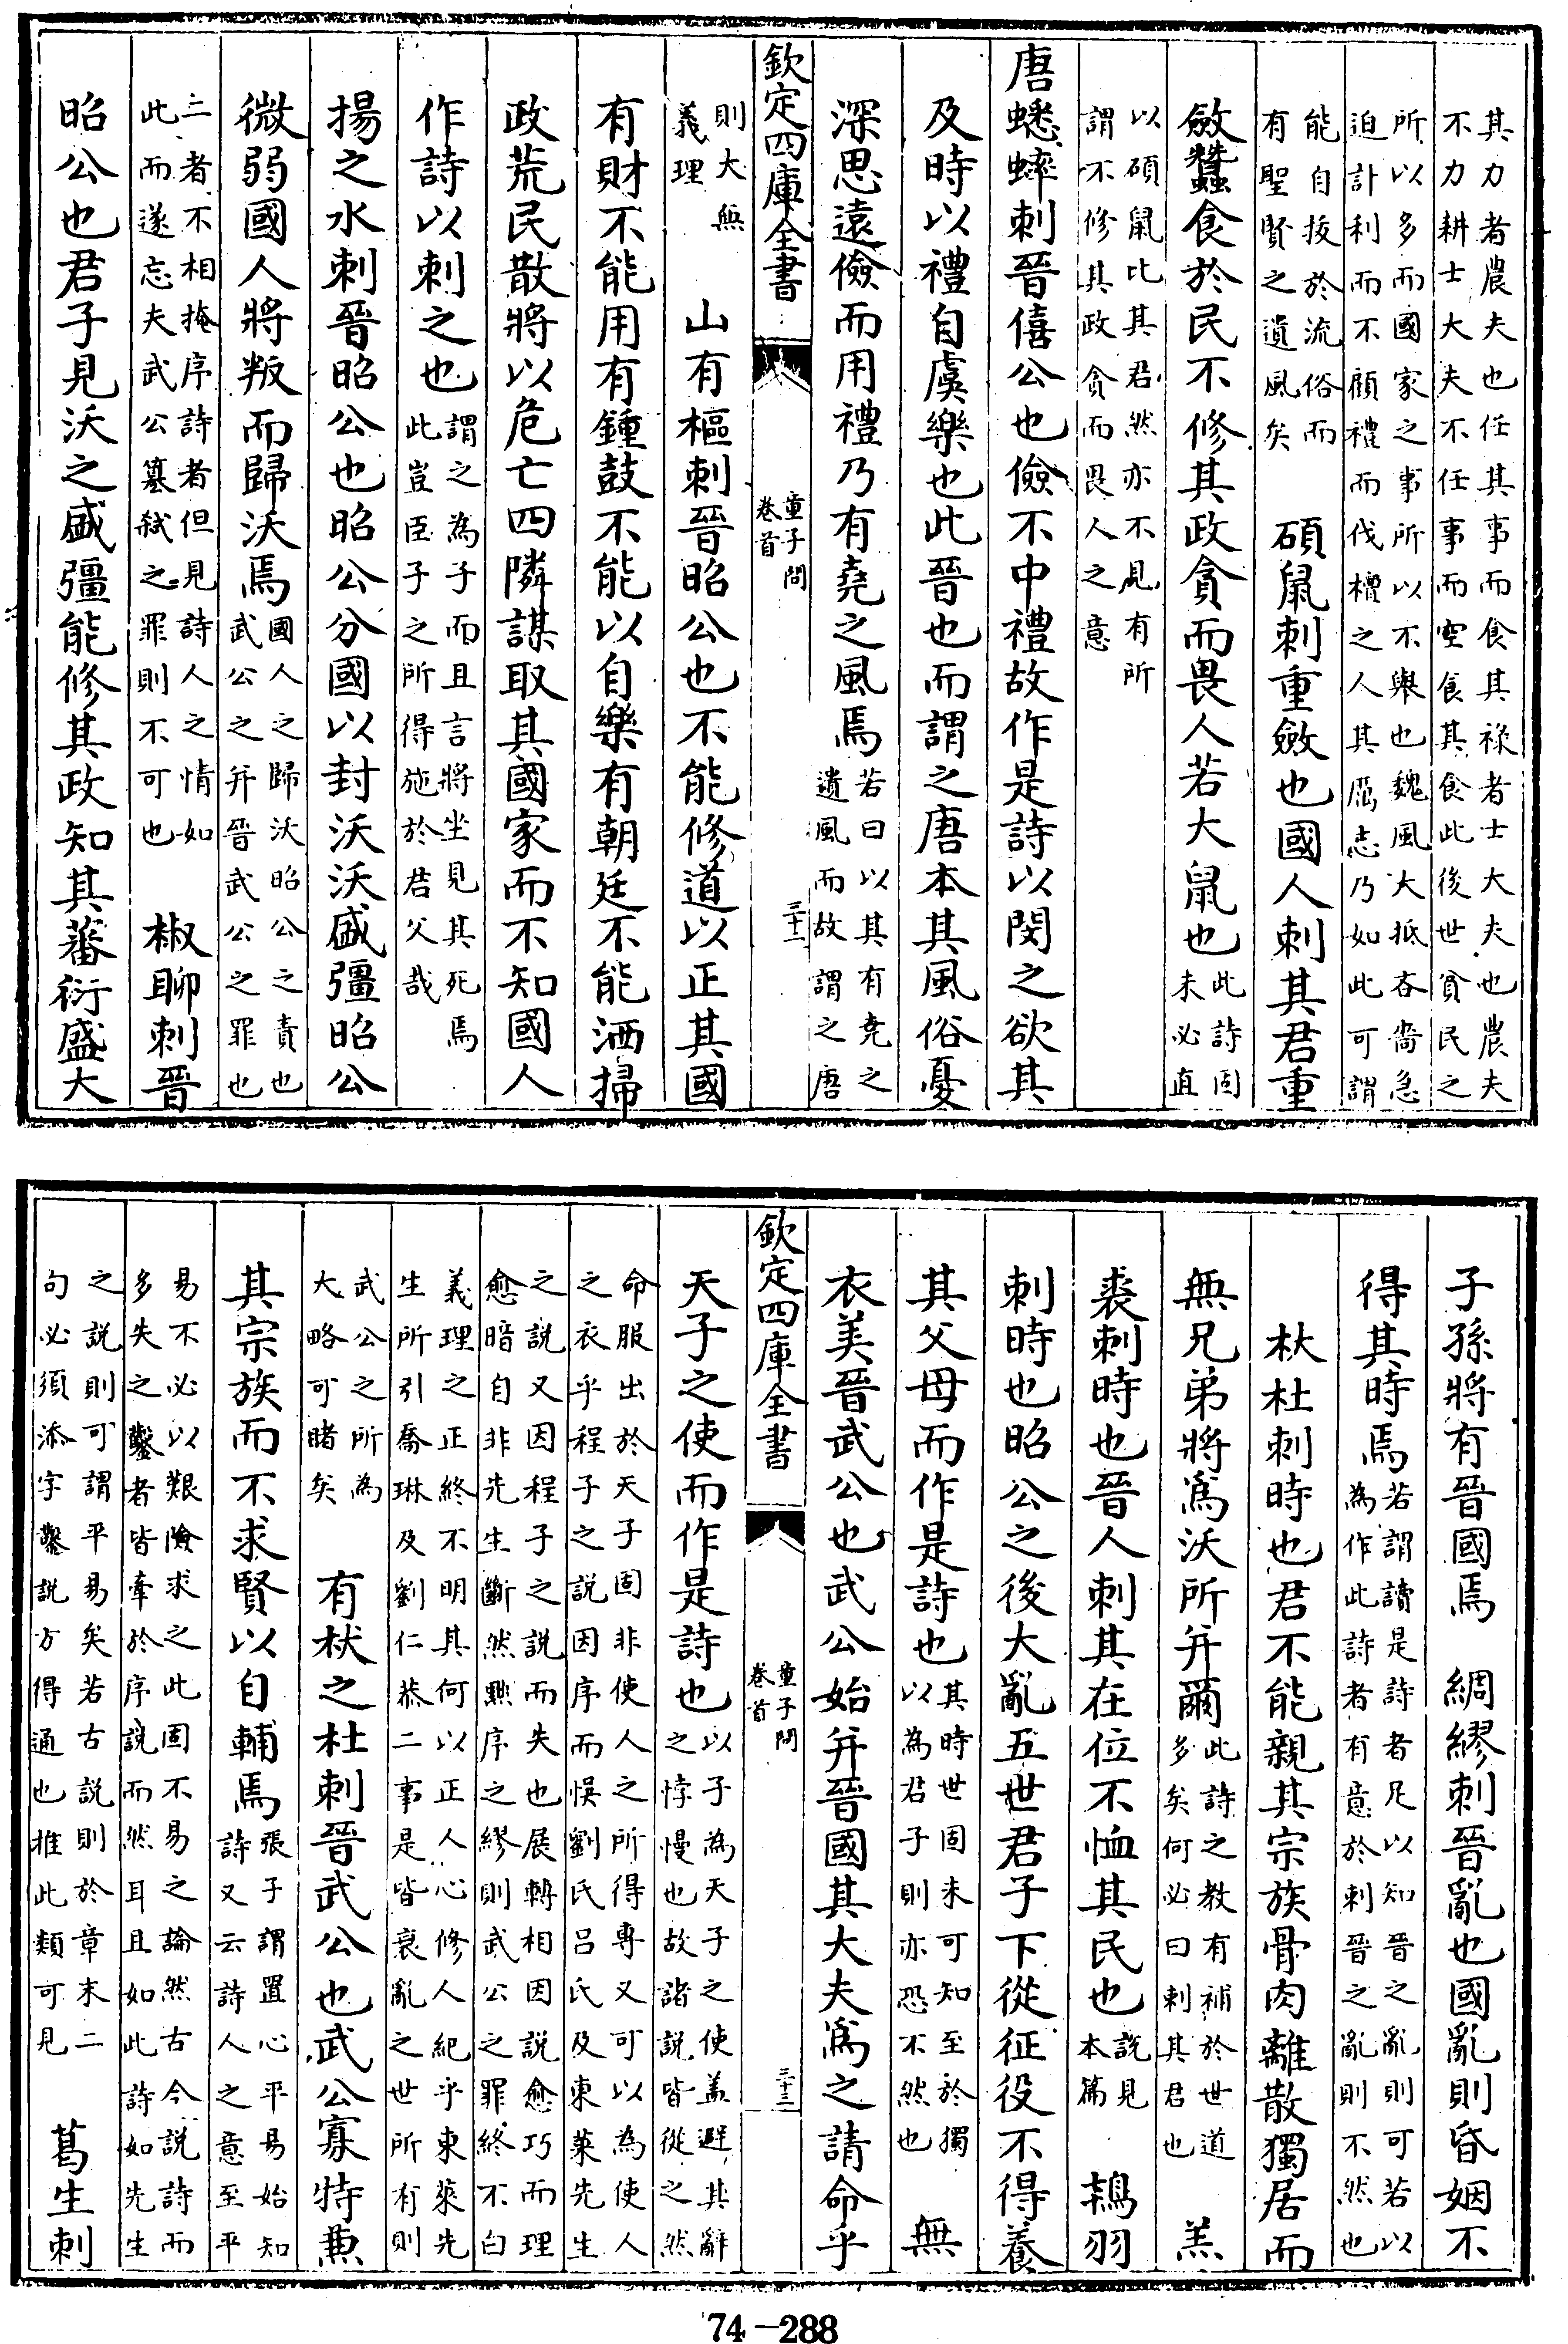 其力者農夫也任其事而食其祿者士大夫也農夫
不力耕士大夫不任事而空食其食此後世貧民之
所以多而國家之事所以不舉也魏風大抵吝嗇急
迫計利而不顧禮而伐檀之人其厲志乃如此可謂
能自拔於流俗而
有聖賢之遺風矣
碩鼠刺重斂也國人刺其君重
斂蠶食於民不修其政貪而畏人若大鼠也
此詩固
未必直
以碩鼠比其君然亦不見有所
謂不修其政貪而畏人之意
唐蟋蟀刺晉僖公也儉不中禮故作是詩以閔之欲其
及時以禮自虞樂也此晉也而謂之唐本其風俗憂
深思遠儉而用禮乃有堯之風焉
若曰以其有堯之
遺風而故謂之唐
欽定四庫全書
童子問
卷首
三十二
則大無
義理
山有樞刺晉昭公也不能修道以正其國
有財不能用有鍾鼓不能以自樂有朝廷不能洒掃
政荒民散將以危亡四隣謀取其國家而不知國人
作詩以刺之也
謂之為子而且言將坐見其死焉
此豈臣子之所得施於君父哉
揚之水刺晉昭公也昭公分國以封沃沃盛彊昭公
微弱國人將叛而歸沃焉
國人之歸沃昭公之責也
武公之并晉武公之罪也
二者不相掩序詩者但見詩人之情如
此而遂忘夫武公簒弑之罪則不可也
椒聊刺晉
昭公也君子見沃之盛彊能修其政知其蕃衍盛大
子孫將有晉國焉 綢繆刺晉亂也國亂則昏姻不
得其時焉
若謂讀是詩者足以知晉之亂則可若以
為作此詩者有意於刺晉之亂則不然也
杕杜刺時也君不能親其宗族骨肉離散獨居而
無兄弟將為沃所并爾
此詩之教有補於世道
多矣何必曰刺其君也
羔
裘刺時也晉人刺其在位不恤其民也
說見
本篇
鴇羽
刺時也昭公之後大亂五世君子下從征役不得養
其父母而作是詩也
其時世固未可知至於獨
以為君子則亦恐不然也
無
衣美晉武公也武公始并晉國其大夫為之請命乎
欽定四庫全書
童子問
卷首
三十三
天子之使而作是詩也
以子為天子之使盖避其辭
之悖慢也故諸說皆從之然
命服出於天子固非使人之所得專又可以為使人
之衣乎程子之説因序而悞劉氏呂氏及東萊先生
之説又因程子之説而失也展轉相因說愈巧而理
愈暗自非先生斷然黜序之繆則武公之罪終不白
義理之正終不明其何以正人心修人紀乎東萊先
生所引喬琳及劉仁恭二事是皆衰亂之世所有則
武公之所為
大略可睹矣
有杕之杜刺晉武公也武公寡特兼
其宗族而不求賢以自輔焉
張子謂置心平易始知
詩又云詩人之意至平
易不必以艱險求之此固不易之論然古今說詩而
多失之鑿者皆牽於序說而然耳且如此詩如先生
之説則可謂平易矣若古說則於章末二
句必須添字鑿説方得通也推此類可見
葛生刺
74-288